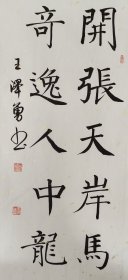 開張天岸馬
奇逸人中龍
王澤勇書